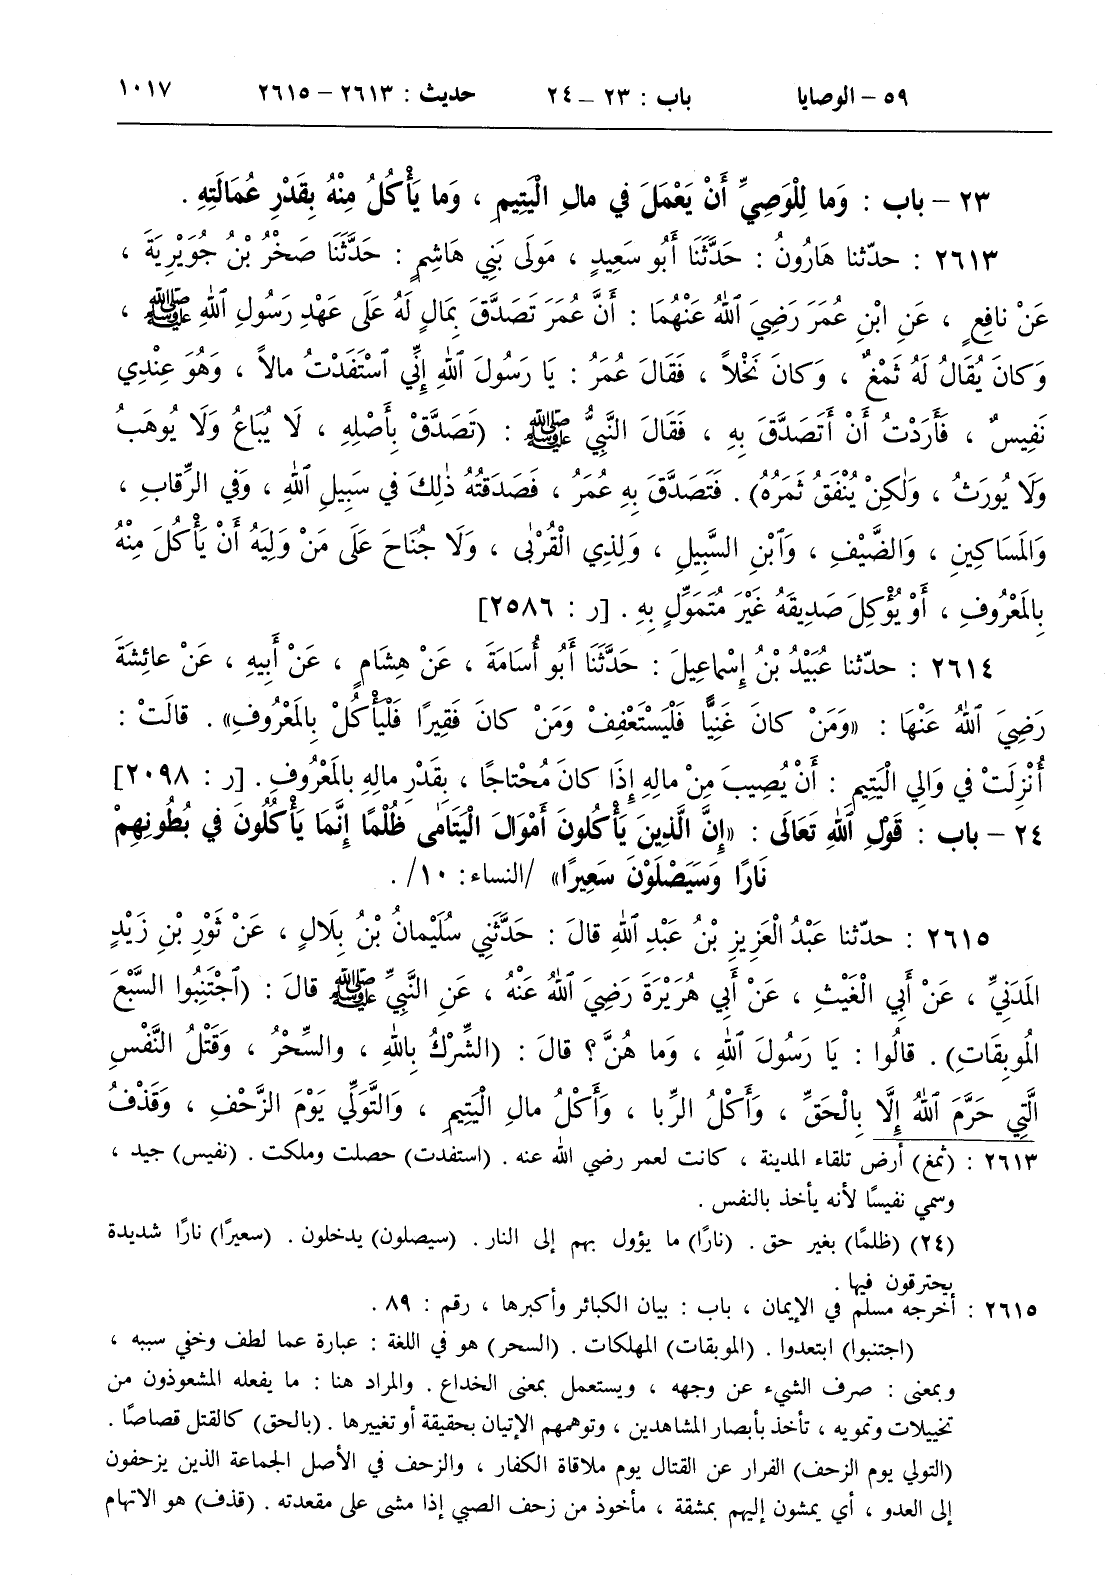 ٥٩ – الوصايا باب : ٢٣ – ٢٤ حديث : ٢٦١٣ – ٢٦١٥ ١٠١٧
٢٣ – باب : وَما لِلْوَصِيِّ أَنْ يَعْمَلَ في مالِ الْيَتِيمِ ، وَما يَأْكُلُ مِنْهُ بِقَدْرِ عُمَالَتِهِ .
٢٦١٣ : حدّثنا هَارُونُ : حَدَّثَنَا أَبُو سَعِيدٍ ، مَوْلَى بَنِي هَاشِمٍ : حَدَّثَنَا صَخْرُ بْنُ جُوَيْرِيَةَ ،
عَنْ نافِعٍ ، عَنِ ابْنِ عُمَرَ رَضِيَ ٱللهُ عَنْهُمَا : أَنَّ عُمَرَ تَصَدَّقَ بِمَالٍ لَهُ عَلَى عَهْدِ رَسُولِ ٱللهِ ﷺ ،
وَكانَ يُقَالُ لَهُ ثَمْغٌ ، وَكانَ نَخْلاً ، فَقَالَ عُمَرُ : يَا رَسُولَ ٱللهِ إِنِّي ٱسْتَفَدْتُ مالاً ، وَهُوَ عِنْدِي
نَفِيسٌ ، فَأَرَدْتُ أَنْ أَتَصَدَّقَ بِهِ ، فَقَالَ النَّبِيُّ ﷺ : (تَصَدَّقْ بِأَصْلِهِ ، لَا يُبَاعُ وَلَا يُوهَبُ
وَلَا يُورَثُ ، وَلٰكِنْ يُنْفَقُ ثَمَرُهُ) . فَتَصَدَّقَ بِهِ عُمَرُ ، فَصَدَقَتُهُ ذٰلِكَ في سَبِيلِ ٱللهِ ، وَفي الرِّقابِ ،
وَالمَسَاكِينِ ، وَالضَّيْفِ ، وَٱبْنِ السَّبِيلِ ، وَلِذِي الْقُرْبٰى ، وَلَا جُنَاحَ عَلَى مَنْ وَلِيَهُ أَنْ يَأْكُلَ مِنْهُ
بِالمَعْرُوفِ ، أَوْ يُؤْكِلَ صَدِيقَهُ غَيْرَ مُتَمَوِّلٍ بِهِ . [ر : ٢٥٨٦]
٢٦١٤ : حدّثنا عُبَيْدُ بْنُ إِسْماعِيلَ : حَدَّثَنَا أَبُو أُسَامَةَ ، عَنْ هِشَامٍ ، عَنْ أَبِيهِ ، عَنْ عائِشَةَ
رَضِيَ ٱللهُ عَنْهَا : «وَمَنْ كانَ غَنِيًّا فَلْيَسْتَعْفِفْ وَمَنْ كانَ فَقِيرًا فَلْيَأْكُلْ بِالمَعْرُوفِ» . قالَتْ :
أُنْزِلَتْ في وَالِي الْيَتِيمِ : أَنْ يُصِيبَ مِنْ مالِهِ إِذَا كانَ مُحْتاجًا ، بِقَدْرِ مالِهِ بِالمَعْرُوفِ . [ر : ٢٠٩٨]
٢٤ – باب : قَوْلِ ٱللهِ تَعَالَى : «إِنَّ الَّذِينَ يَأْكُلُونَ أَمْوَالَ الْيَتَامٰى ظُلْمًا إِنَّمَا يَأْكُلُونَ في بُطُونِهِمْ
نَارًا وَسَيَصْلَوْنَ سَعِيرًا» /النساء: ١٠/ .
٢٦١٥ : حدّثنا عَبْدُ الْعَزِيزِ بْنُ عَبْدِ ٱللهِ قالَ : حَدَّثَنِي سُلَيْمانُ بْنُ بِلَالٍ ، عَنْ ثَوْرِ بْنِ زَيْدٍ
المَدَنِيِّ ، عَنْ أَبِي الْغَيْثِ ، عَنْ أَبِي هُرَيْرَةَ رَضِيَ ٱللهُ عَنْهُ ، عَنِ النَّبِيِّ ﷺ قالَ : (ٱجْتَنِبُوا السَّبْعَ
المُوبِقَاتِ) . قالُوا : يَا رَسُولَ ٱللهِ ، وَما هُنَّ ؟ قالَ : (الشِّرْكُ بِاللهِ ، والسِّحْرُ ، وَقَتْلُ النَّفْسِ
الَّتِي حَرَّمَ ٱللهُ إِلَّا بِالْحَقِّ ، وَأَكْلُ الرِّبا ، وَأَكْلُ مالِ الْيَتِيمِ ، وَالتَّوَلِّي يَوْمَ الزَّحْفِ ، وَقَذْفُ
٢٦١٣ : (ثمغ) أرض تلقاء المدينة ، كانت لعمر رضي الله عنه . (استفدت) حصلت وملكت . (نفيس) جيد ،
وسمي نفيسًا لأنه يأخذ بالنفس .
(٢٤) (ظلمًا) بغير حق . (نارًا) ما يؤول بهم إلى النار . (سيصلون) يدخلون . (سعيرًا) نارًا شديدة
يحترقون فيها .
٢٦١٥ : أخرجه مسلم في الإيمان ، باب : بيان الكبائر وأكبرها ، رقم : ٨٩ .
(اجتنبوا) ابتعدوا . (الموبقات) المهلكات . (السحر) هو في اللغة : عبارة عما لطف وخفي سببه ،
وبمعنى : صرف الشيء عن وجهه ، ويستعمل بمعنى الخداع . والمراد هنا : ما يفعله المشعوذون من
تخييلات وتمويه ، تأخذ بأبصار المشاهدين ، وتوهمهم الإتيان بحقيقة أو تغييرها . (بالحق) كالقتل قصاصًا .
(التولي يوم الزحف) الفرار عن القتال يوم ملاقاة الكفار ، والزحف في الأصل الجماعة الذين يزحفون
إلى العدو ، أي يمشون إليهم بمشقة ، مأخوذ من زحف الصبي إذا مشى على مقعدته . (قذف) هو الاتهام